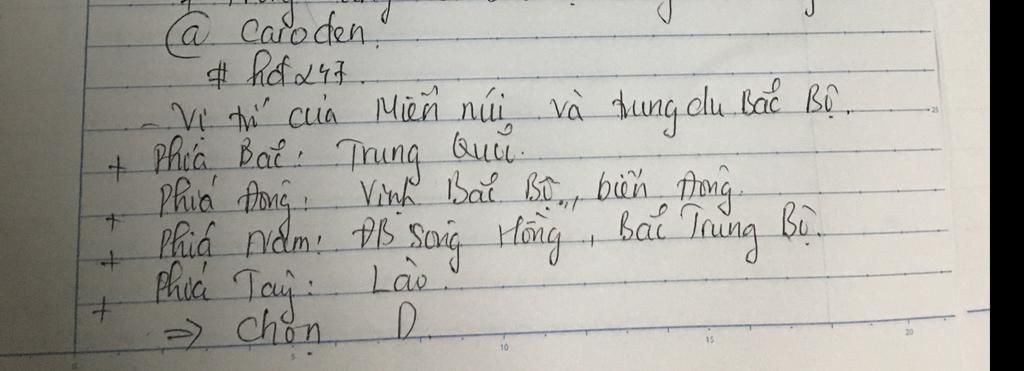 @ Caroden.
# hdf247.
- Vị trí của Miền núi và trung du Bắc Bộ.
+ Phía Bắc: Trung Quốc.
+ Phía Đông: Vịnh Bắc Bộ, biển Đông.
+ Phía Nam: ĐB Sông Hồng, Bắc Trung Bộ.
+ Phía Tây: Lào.
⇒ Chọn D